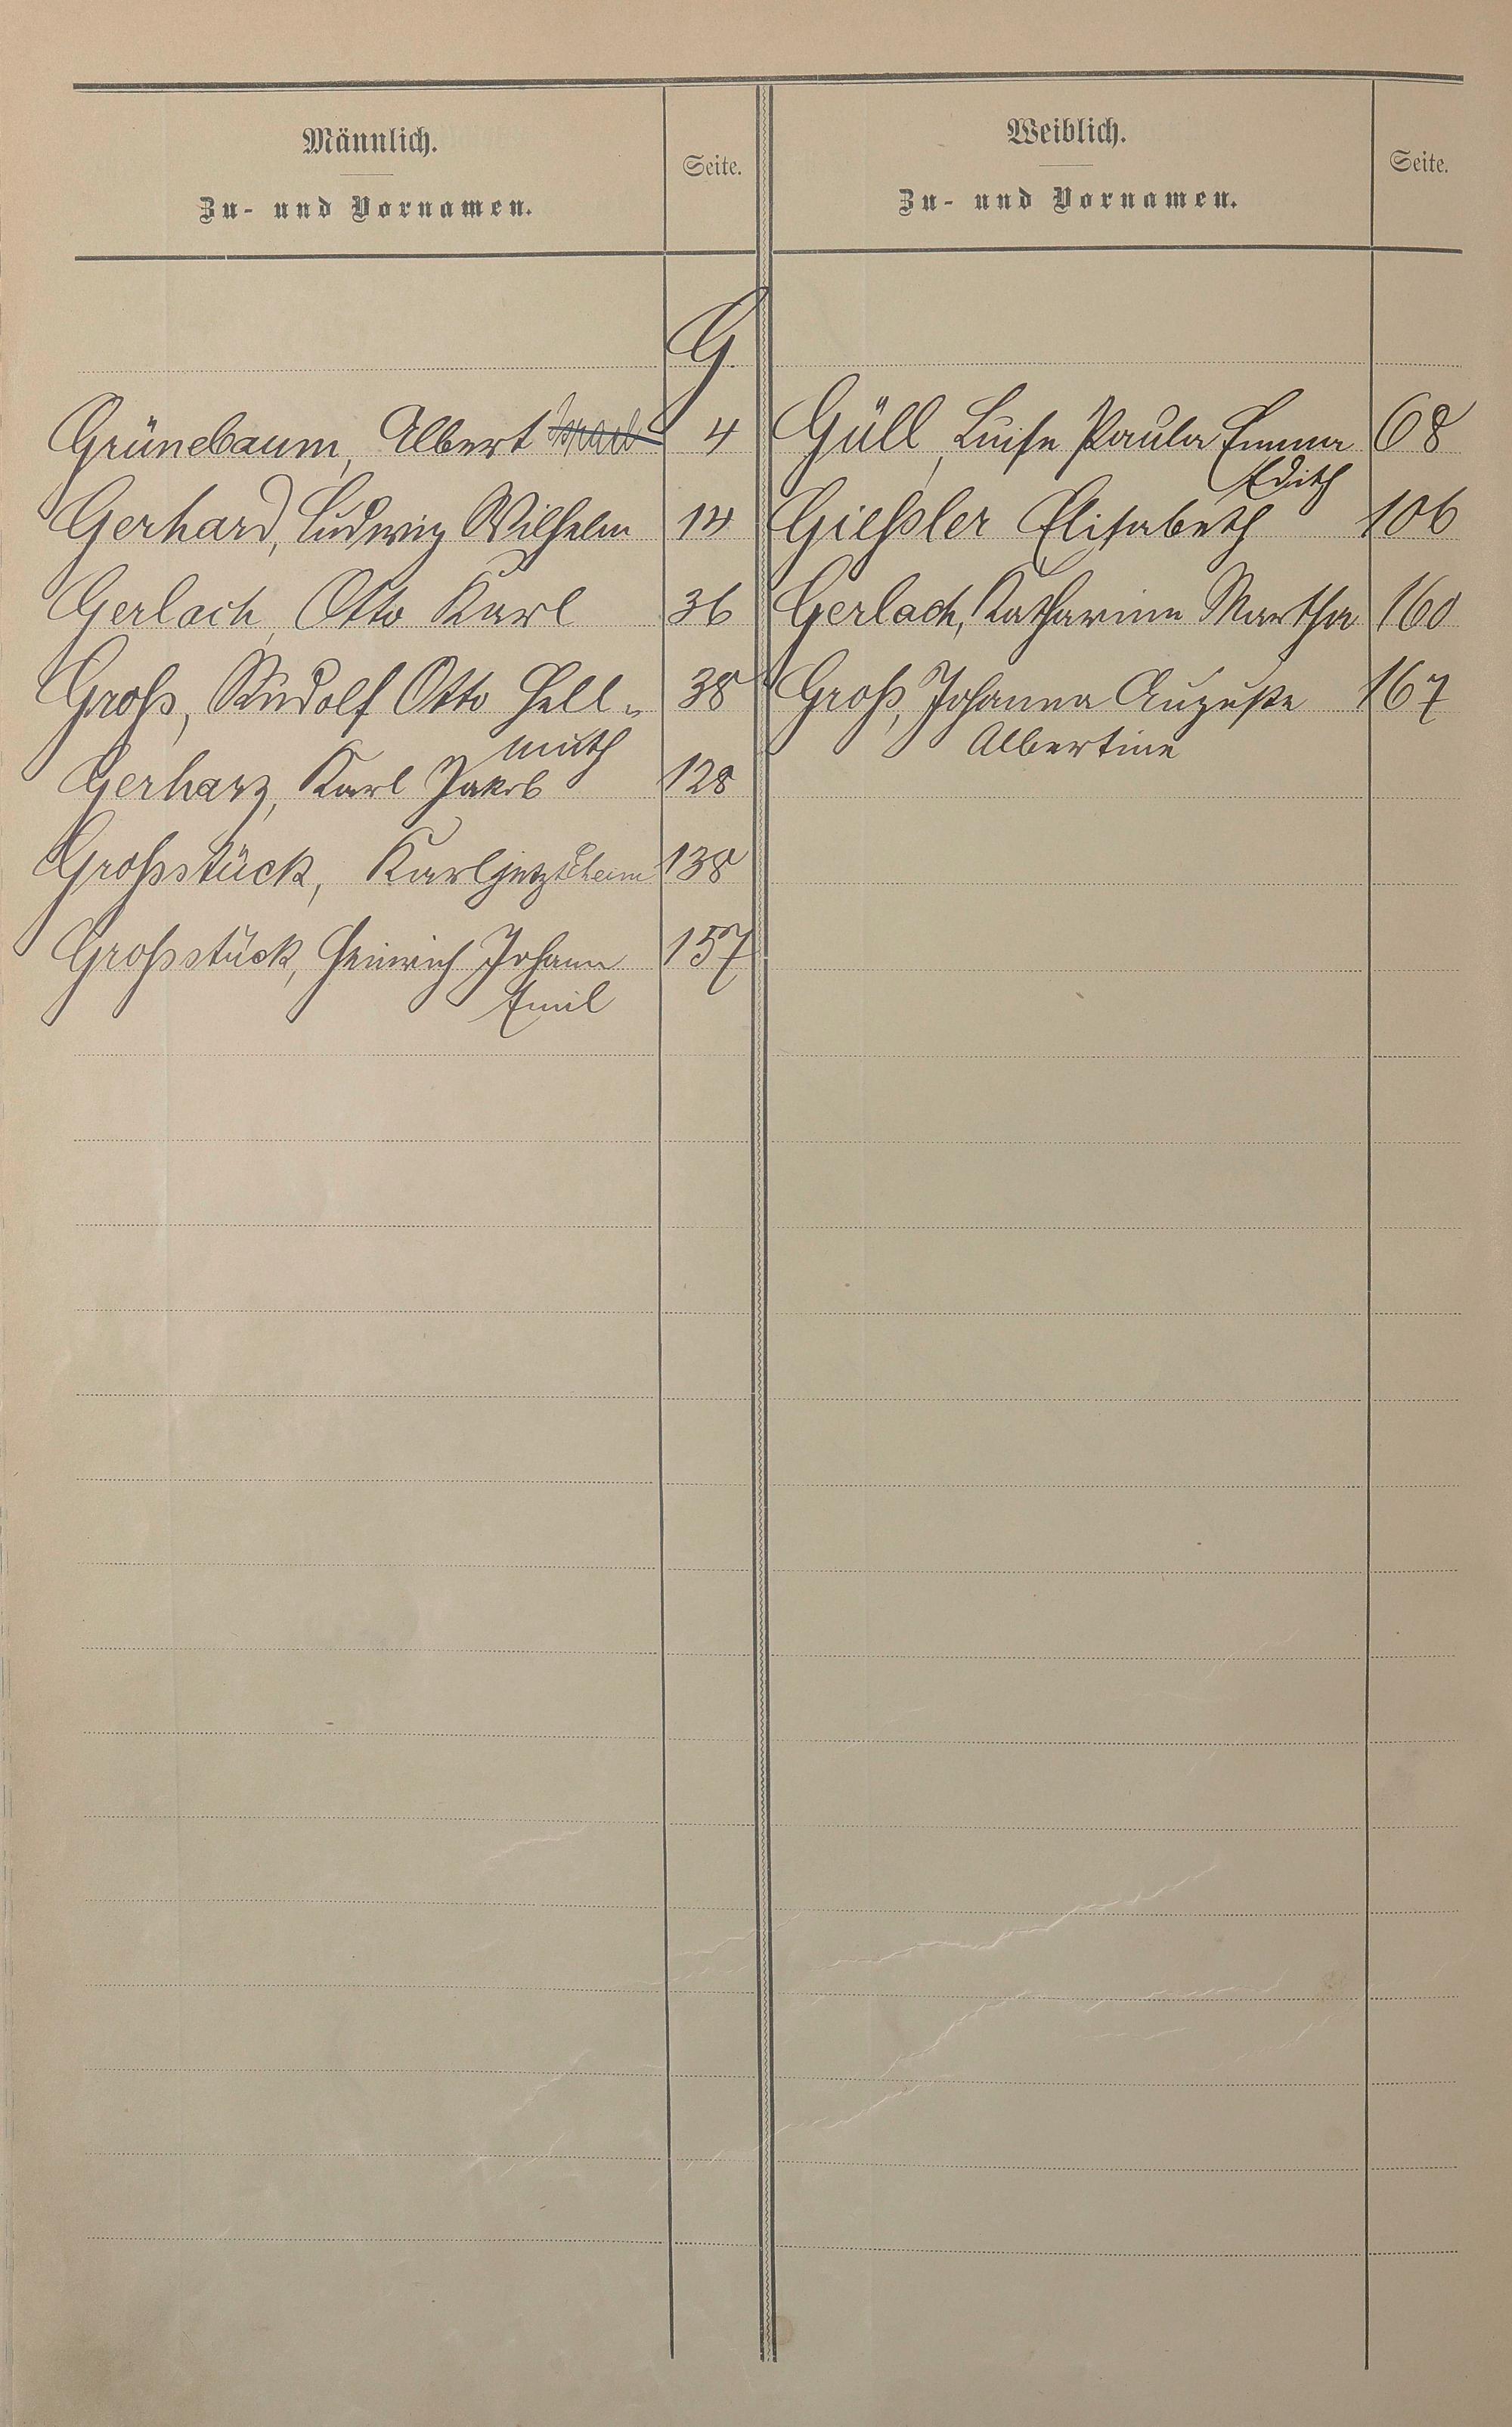 Männlich.
Zu- und Vornamen.
Seite.
Weiblich.
Zu- und Vornamen.
Seite.
G.
Grünebaum, Albert Israel 4
Gerhard, Ludwig Wilhelm 14
Gerlach, Otto Karl 36
Groß, Rudolf Otto Hell-
muth 38
Gerharz, Karl Jakob 128
Großstück, Karl jetzt 138
Großstück, Heinrich Johann 157
Emil
Güll, Luise Paula Emma 68
Edith
Gießler Elisabeth 106
Gerlach, Katharina Martha 160
Groß, Johanna Auguste 167
Albertine